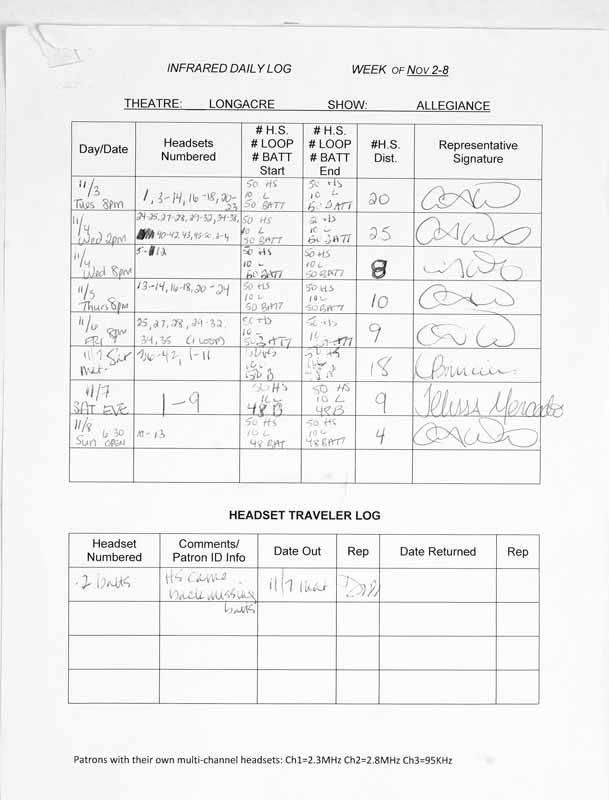 INFRARED DAILY LOG WEEK OF NOV 2-8
THEATRE: LONGACRE SHOW: ALLEGIANCE
Day/Date Headsets Numbered # H.S. # LOOP # BATT Start # H.S. # LOOP # BATT End #H.S. Dist. Representative Signature
11/3 Tues 8pm 1, 3-14, 16-18, 20-23 50 HS 10 L 50 BATT 50 HS 10 L 50 BATT 20
11/4 Wed 2pm 24-25, 27-28, 29-32, 34-38, 40-42, 43, 45-50, 3-4 50 HS 10 L 50 BATT 50 HS 10 L 50 BATT 25
11/4 Wed 8pm 5-12 50 HS 10 L 50 BATT 50 HS 10 L 50 BATT 8
11/5 Thurs 8pm 13-14, 16-18, 20-24 50 HS 10 L 50 BATT 50 HS 10 L 50 BATT 10
11/6 FRI 8pm 25, 27, 28, 29-32, 34, 35 (1 LOOP) 50 HS 10 L 50 BATT 50 HS 10 L 50 BATT 9
11/7 Sat Mat. 36-42, 1-11 50 HS 10 L 50 B 50 HS 10 L 48 B 18
11/7 SAT EVE 1-9 50 HS 10 L 48 B 50 HS 10 L 48 B 9 Melissa Mercado
11/8 Sun 6:30 OPEN 10-13 50 HS 10 L 48 BAT 50 HS 10 L 48 BATT 4
HEADSET TRAVELER LOG
Headset Numbered Comments/ Patron ID Info Date Out Rep Date Returned Rep
2 batts HS came back missing batts 11/7 mat
Patrons with their own multi-channel headsets: Ch1=2.3MHz Ch2=2.8MHz Ch3=95KHz